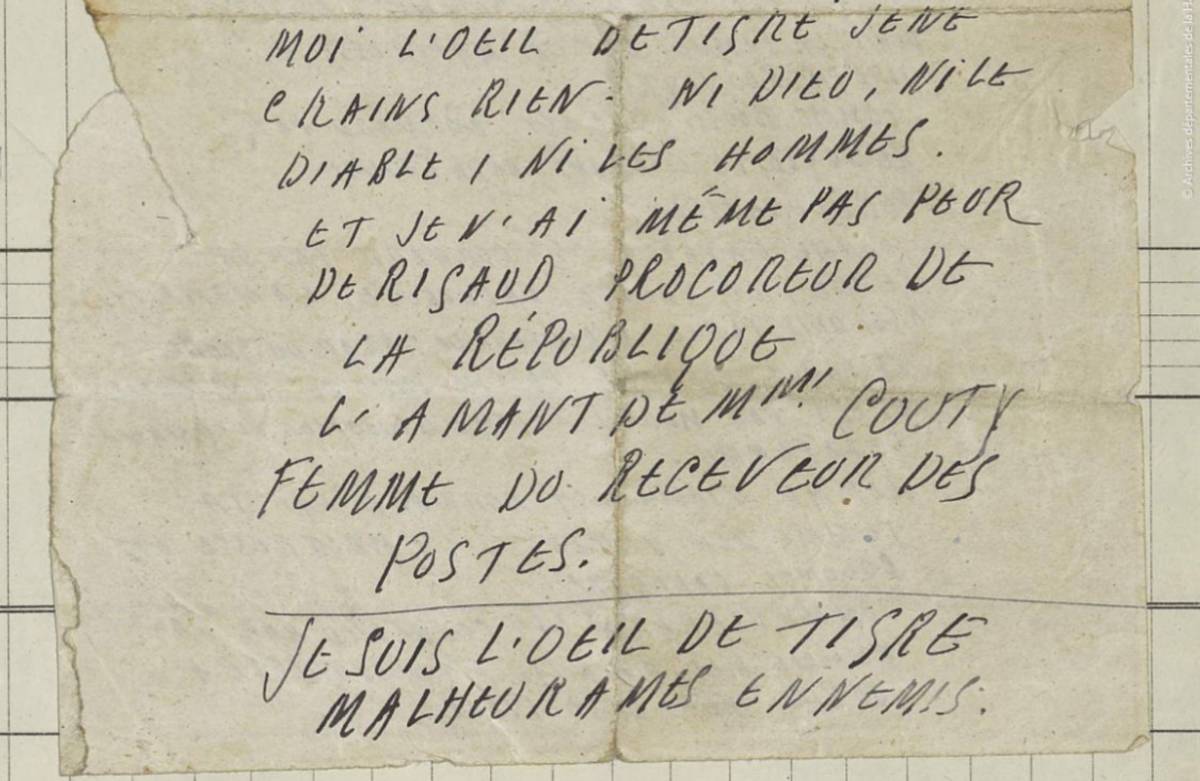 MOI L'OEIL DE TIGRE JE NE
CRAINS RIEN. NI DIEU, NI LE
DIABLE, NI LES HOMMES.
ET JE N'AI MÊME PAS PEUR
DE RIGAUD PROCUREUR DE
LA RÉPUBLIQUE
L'AMANT DE Mme COUTY
FEMME DU RECEVEUR DES
POSTES.
JE SUIS L'OEIL DE TIGRE
MALHEUR A MES ENNEMIS.
© Archives départementales de la H